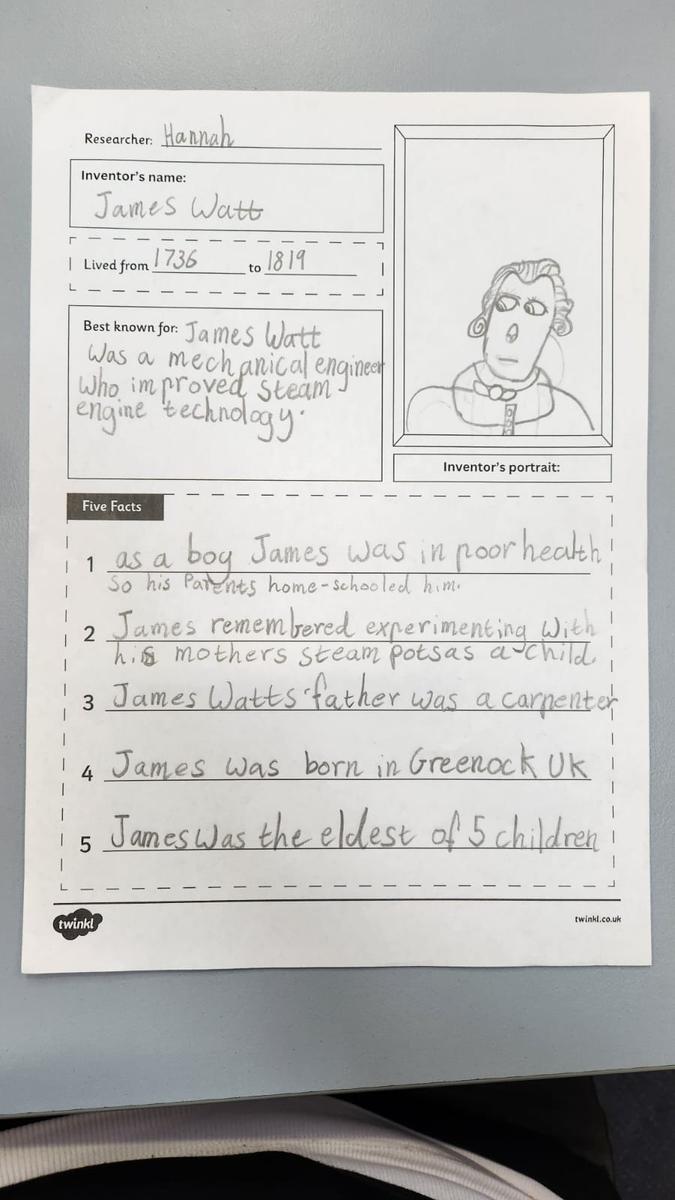 Researcher: Hannah
Inventor's name:
James Watt
Lived from 1736 to 1819
Best known for: James Watt
was a mechanical engineer
who improved steam
engine technology.
Inventor's portrait:
Five Facts
1 as a boy James was in poor health
So his Parents home-schooled him.
2 James remembered experimenting with
his mothers steam pots as a child.
3 James Watts father was a carpenter
4 James was born in Greenock UK
5 James was the eldest of 5 children
twinkl
twinkl.co.uk